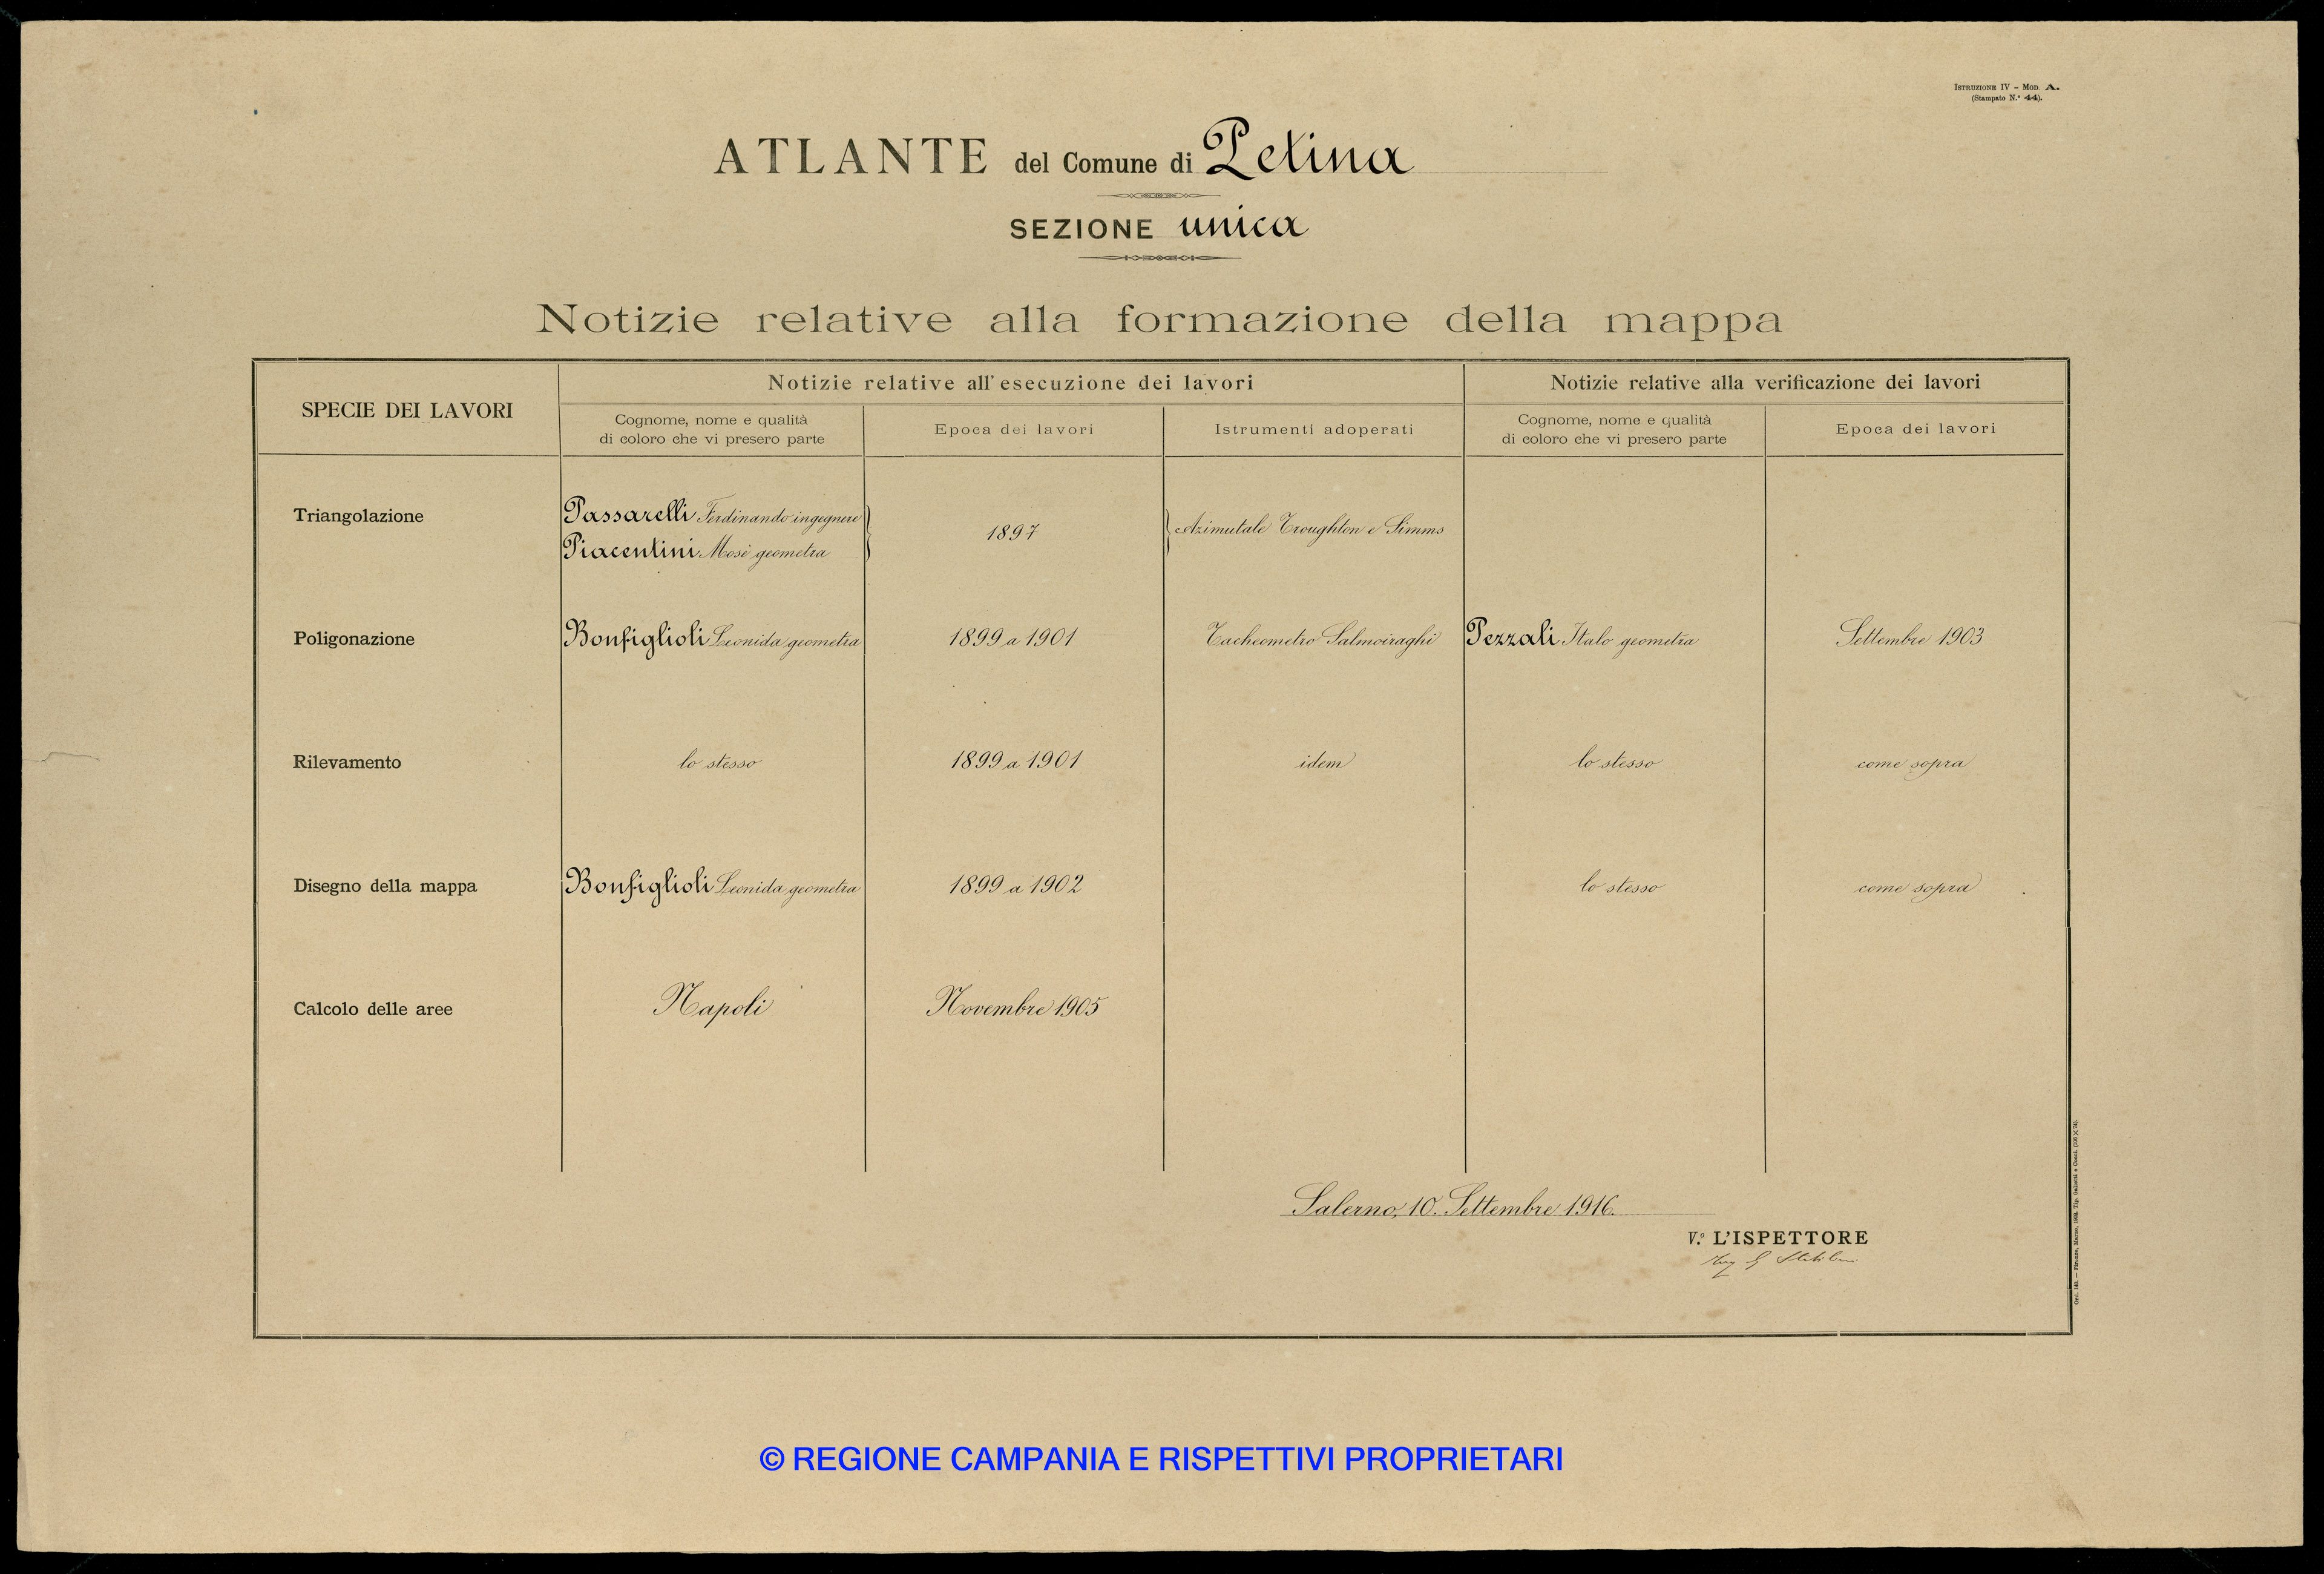 ISTRUZIONE IV – MOD. A.
(Stampato N.° 44).
ATLANTE del Comune di Petina
SEZIONE unica
Notizie relative alla formazione della mappa
SPECIE DEI LAVORI
Notizie relative all'esecuzione dei lavori
Notizie relative alla verificazione dei lavori
Cognome, nome e qualità
di coloro che vi presero parte
Epoca dei lavori
Istrumenti adoperati
Cognome, nome e qualità
di coloro che vi presero parte
Epoca dei lavori
Triangolazione
Passarelli Ferdinando ingegnere
Piacentini Mosè geometra
1897
Azimutale Troughton e Simms
Poligonazione
Bonfiglioli Leonida geometra
1899 a 1901
Tacheometro Salmoiraghi
Pezzali Italo geometra
Settembre 1903
Rilevamento
lo stesso
1899 a 1901
idem
lo stesso
come sopra
Disegno della mappa
Bonfiglioli Leonida geometra
1899 a 1902
lo stesso
come sopra
Calcolo delle aree
Napoli
Novembre 1905
Salerno, 10. Settembre 1916.
V.° L'ISPETTORE
Ord. 145. — Firenze, Marzo, 1904. Tip. Galletti e Cocci.
© REGIONE CAMPANIA E RISPETTIVI PROPRIETARI